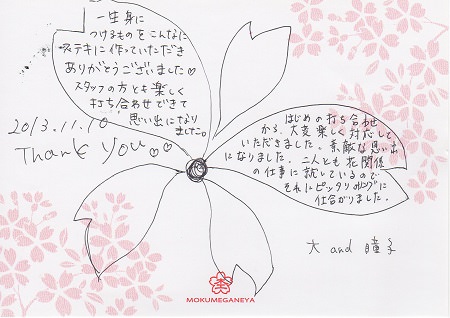 一生身に
つけるものをこんなに
ステキに作っていただき
ありがとうございました♡
スタッフの方とも楽しく
打ち合わせできて
思い出になり
ました。
2013.11.10
Thank you♡♡
はじめの打ち合わせ
から、大変楽しく対応して
いただきました。素敵な思い出
になりました。二人とも花関係
の仕事に就いているので
それにピッタリのリングに
仕合がりました。
大 and 瞳子
MOKUMEGANEYA